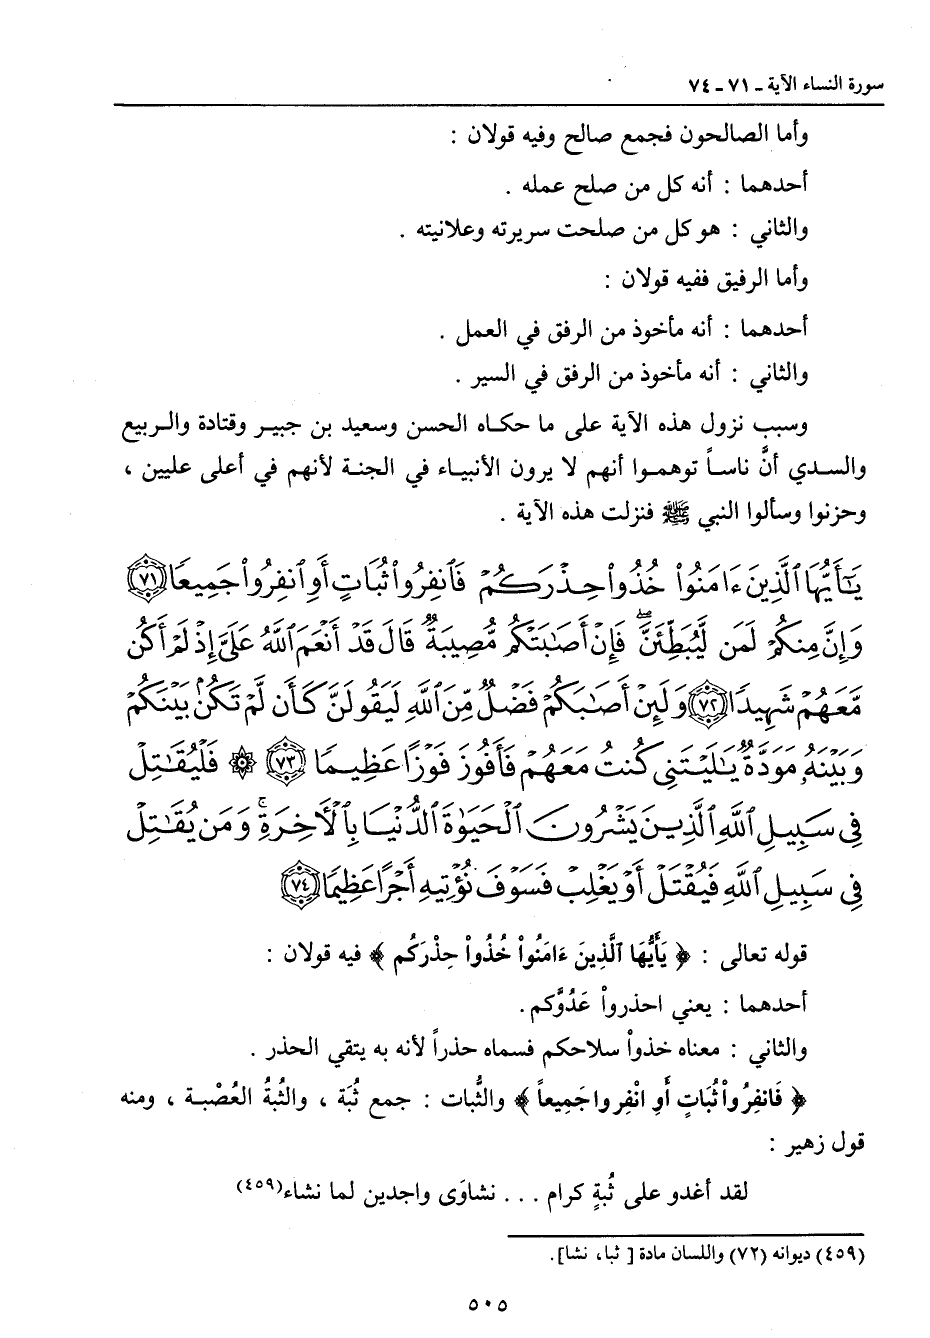 سورة النساء الآية ـ ٧١ ـ ٧٤
وأما الصالحون فجمع صالح وفيه قولان :
أحدهما : أنه كل من صلح عمله .
والثاني : هو كل من صلحت سريرته وعلانيته .
وأما الرفيق ففيه قولان :
أحدهما : أنه مأخوذ من الرفق في العمل .
والثاني : أنه مأخوذ من الرفق في السير .
وسبب نزول هذه الآية على ما حكاه الحسن وسعيد بن جبير وقتادة والربيع
والسدي أنَّ ناساً توهموا أنهم لا يرون الأنبياء في الجنة لأنهم في أعلى عليين ،
وحزنوا وسألوا النبي ﷺ فنزلت هذه الآية .
يَٰٓأَيُّهَا ٱلَّذِينَ ءَامَنُوا۟ خُذُوا۟ حِذْرَكُمْ فَٱنفِرُوا۟ ثُبَاتٍ أَوِ ٱنفِرُوا۟ جَمِيعًا ٧١
وَإِنَّ مِنكُمْ لَمَن لَّيُبَطِّئَنَّ ۖ فَإِنْ أَصَٰبَتْكُم مُّصِيبَةٌ قَالَ قَدْ أَنْعَمَ ٱللَّهُ عَلَىَّ إِذْ لَمْ أَكُن
مَّعَهُمْ شَهِيدًا ٧٢ وَلَئِنْ أَصَٰبَكُمْ فَضْلٌ مِّنَ ٱللَّهِ لَيَقُولَنَّ كَأَن لَّمْ تَكُنۢ بَيْنَكُمْ
وَبَيْنَهُۥ مَوَدَّةٌ يَٰلَيْتَنِى كُنتُ مَعَهُمْ فَأَفُوزَ فَوْزًا عَظِيمًا ٧٣ ۞ فَلْيُقَٰتِلْ
فِى سَبِيلِ ٱللَّهِ ٱلَّذِينَ يَشْرُونَ ٱلْحَيَوٰةَ ٱلدُّنْيَا بِٱلْءَاخِرَةِ ۚ وَمَن يُقَٰتِلْ
فِى سَبِيلِ ٱللَّهِ فَيُقْتَلْ أَوْ يَغْلِبْ فَسَوْفَ نُؤْتِيهِ أَجْرًا عَظِيمًا ٧٤
قوله تعالى : ﴿ يَأَيُّهَا ٱلَّذِينَ ءَامَنُوا۟ خُذُوا۟ حِذْرَكُم ﴾ فيه قولان :
أحدهما : يعني احذروا۟ عَدُوَّكم .
والثاني : معناه خذوا۟ سلاحكم فسماه حذراً لأنه به يتقي الحذر .
﴿ فَانفِرُوا۟ ثُبَاتٍ أَوِ انْفِروا جَمِيعاً ﴾ والثُّبات : جمع ثُبَة ، والثبةُ العُصْبة ، ومنه
قول زهير :
لقد أغدو على ثُبةٍ كرام ... نشاوَى واجدين لما نشاء(٤٥٩)
(٤٥٩) ديوانه (٧٢) واللسان مادة [ ثبا، نشا].
٥٠٥